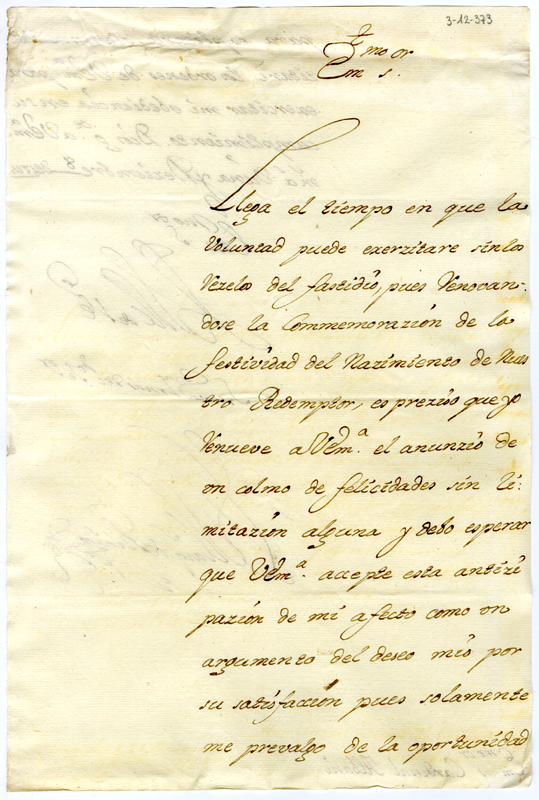 3-12-373
Em.mo S.or
Llega el tiempo en que la
Voluntad puede exerzitarse sin los
rezelos del fastidio, pues renovan-
dose la Commemorazión de la
festividad del Nazimiento de Nues
tro Redemptor, es prezíso que yo
renueve a VEm.a el anunzio de
un colmo de felicidades sin li-
mitazión alguna y debo esperar
que VEm.a accepte esta antizi
pazión de mi afecto como un
argumento del deseo mío por
su satisfacción pues solamente
me prevalgo de la oportunidad